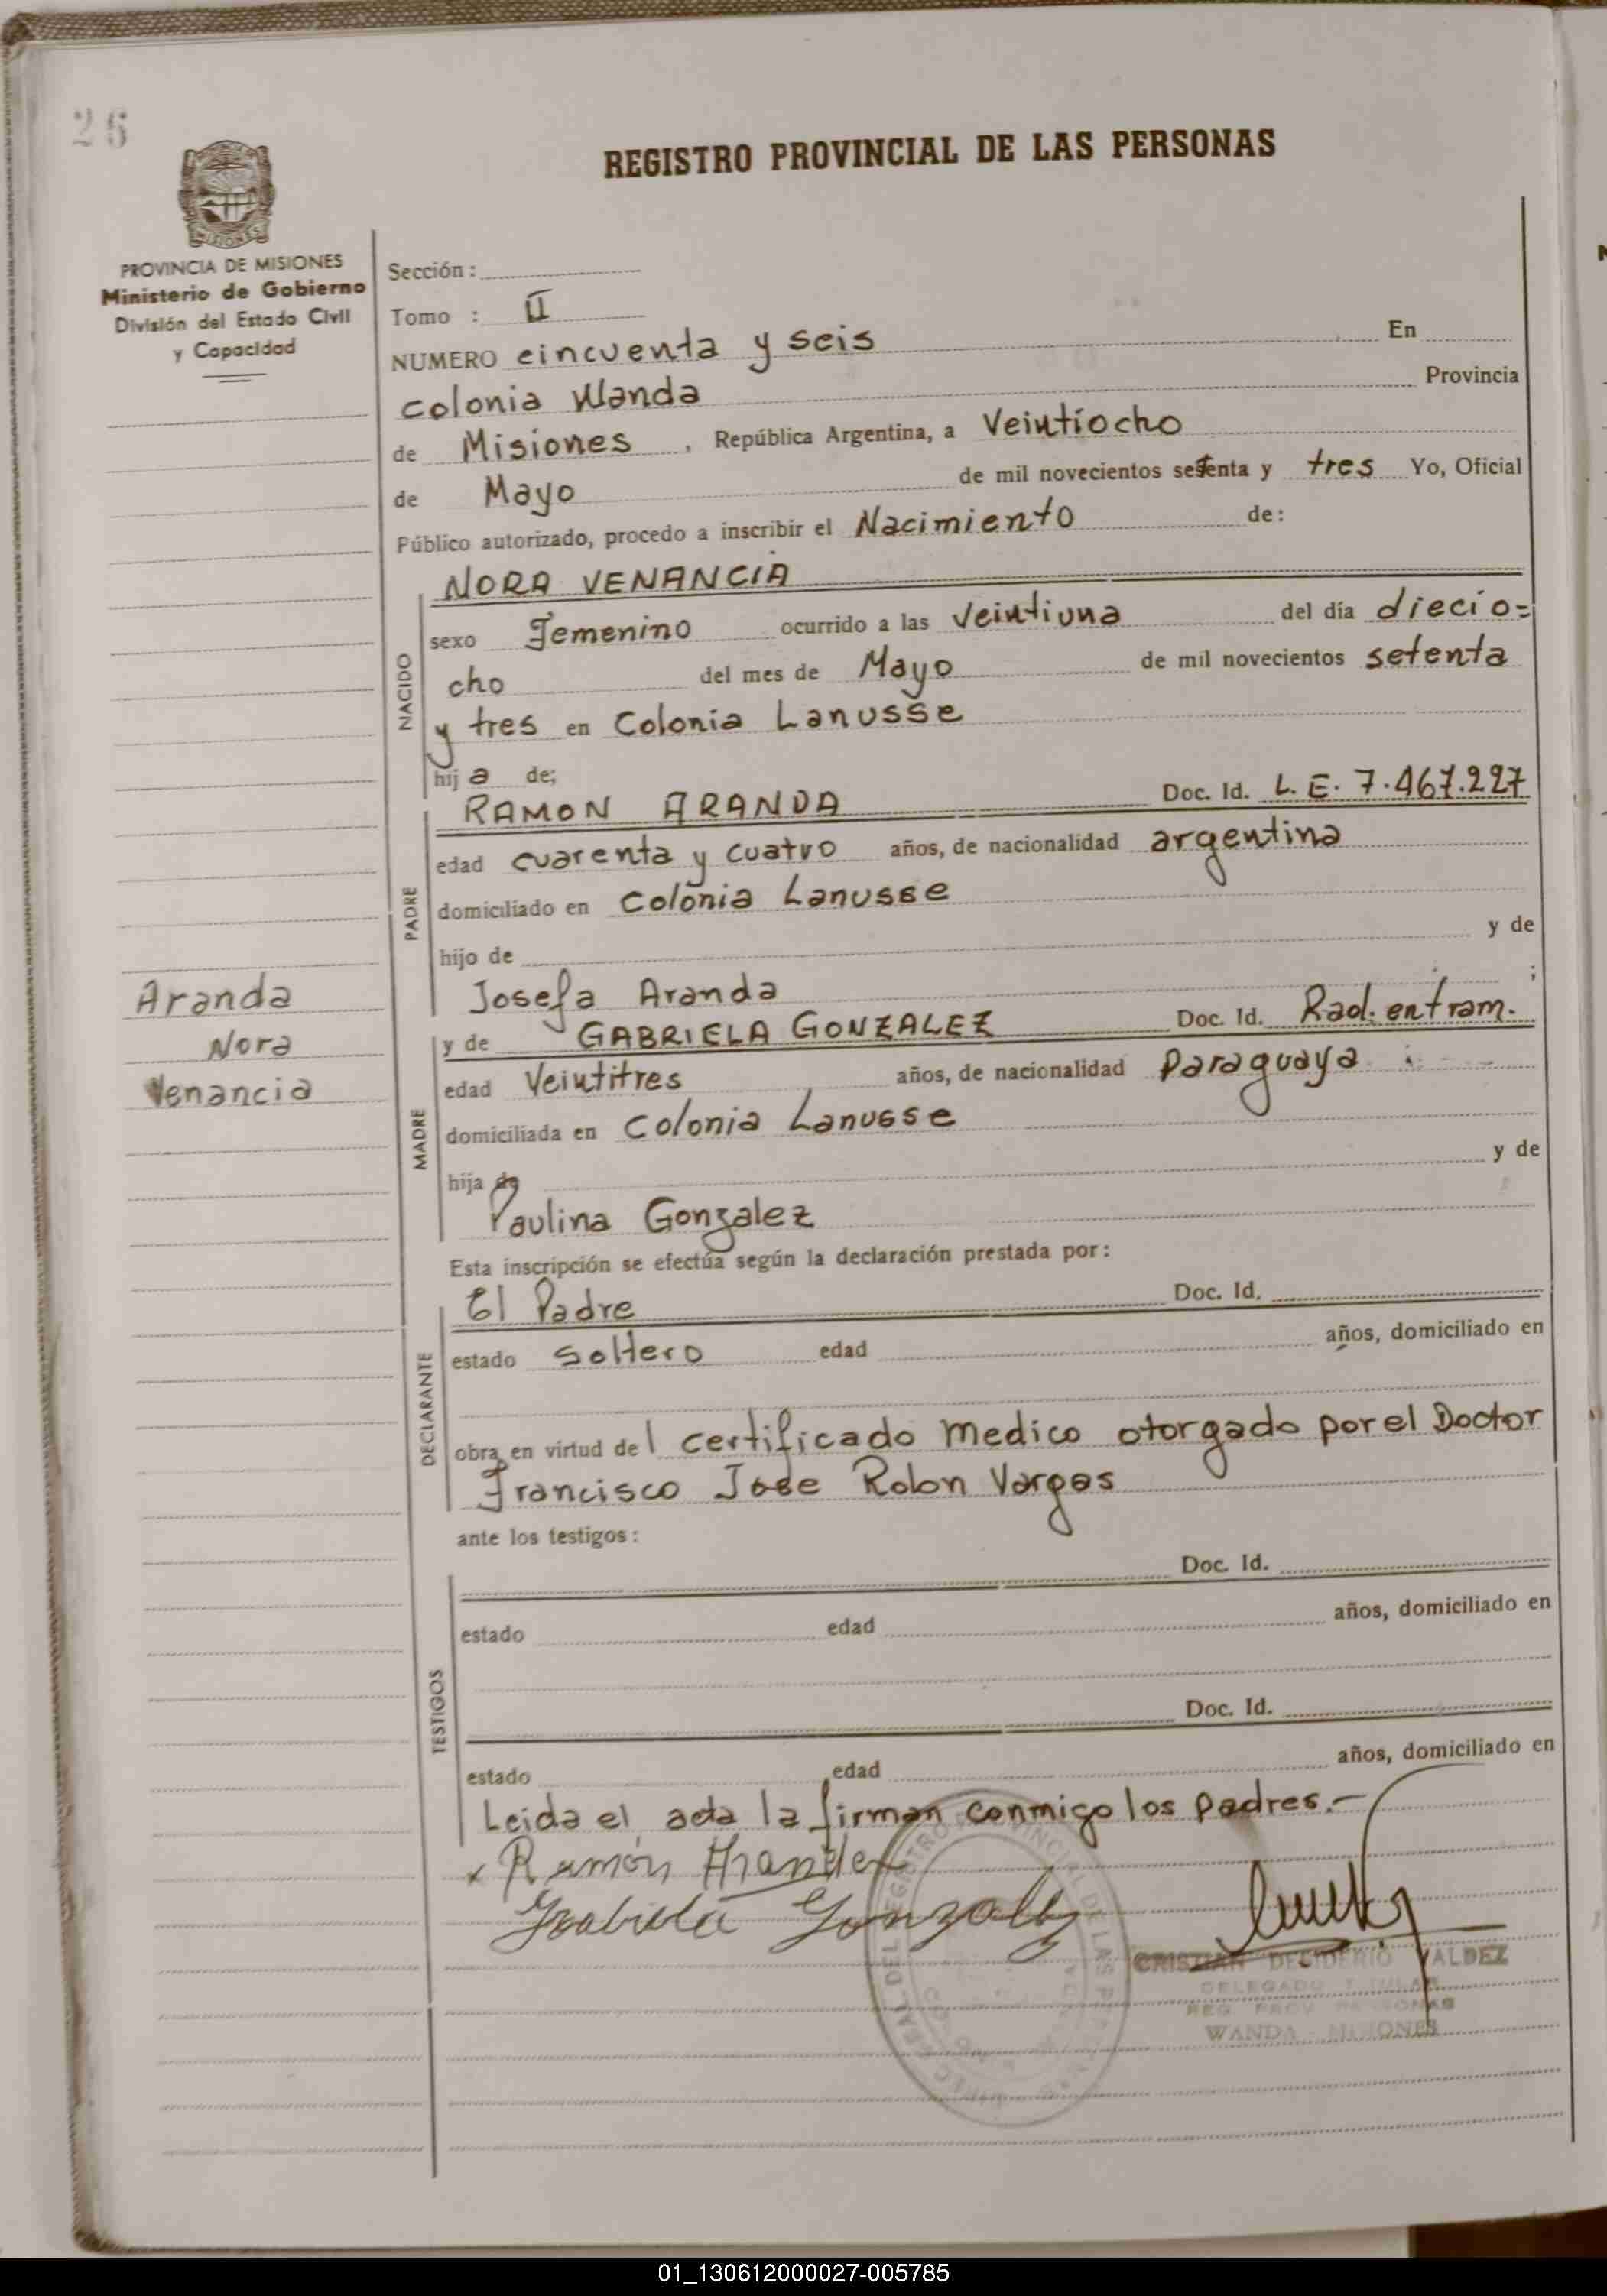 26
REGISTRO PROVINCIAL DE LAS PERSONAS
MISIONES
PROVINCIA DE MISIONES
Ministerio de Gobierno
División del Estado Civil
y Capacidad
Sección:
Tomo : II
NUMERO cincuenta y seis En
Colonia Wanda Provincia
de Misiones , República Argentina, a Veintiocho
de Mayo de mil novecientos setenta y tres Yo, Oficial
Público autorizado, procedo a inscribir el Nacimiento de:
NORA VENANCIA
NACIDO
sexo Femenino ocurrido a las veintiuna del día diecio=
cho del mes de Mayo de mil novecientos setenta
y tres en Colonia Lanusse
hija de;
RAMON ARANDA Doc. Id. L. E. 7.467.227
PADRE
edad cuarenta y cuatro años, de nacionalidad argentina
domiciliado en Colonia Lanusse
hijo de y de
Josefa Aranda ;
Aranda
Nora
Venancia
y de GABRIELA GONZALEZ Doc. Id. Rad. en tram.
MADRE
edad Veintitres años, de nacionalidad Paraguaya
domiciliada en Colonia Lanusse
hija de y de
Paulina Gonzalez
Esta inscripción se efectúa según la declaración prestada por:
El Padre Doc. Id.
DECLARANTE
estado soltero edad años, domiciliado en
obra en virtud del certificado medico otorgado por el Doctor
Francisco Jose Rolon Vargas
ante los testigos:
Doc. Id.
TESTIGOS
estado edad años, domiciliado en
Doc. Id.
estado edad años, domiciliado en
Leida el acta la firman conmigo los padres.-
x Ramón Aranda
Grabiela Gonzalez
CRISTIAN DESIDERIO VALDEZ
DELEGADO TITULAR
REG. PROV. PERSONAS
WANDA - MISIONES
01_130612000027-005785